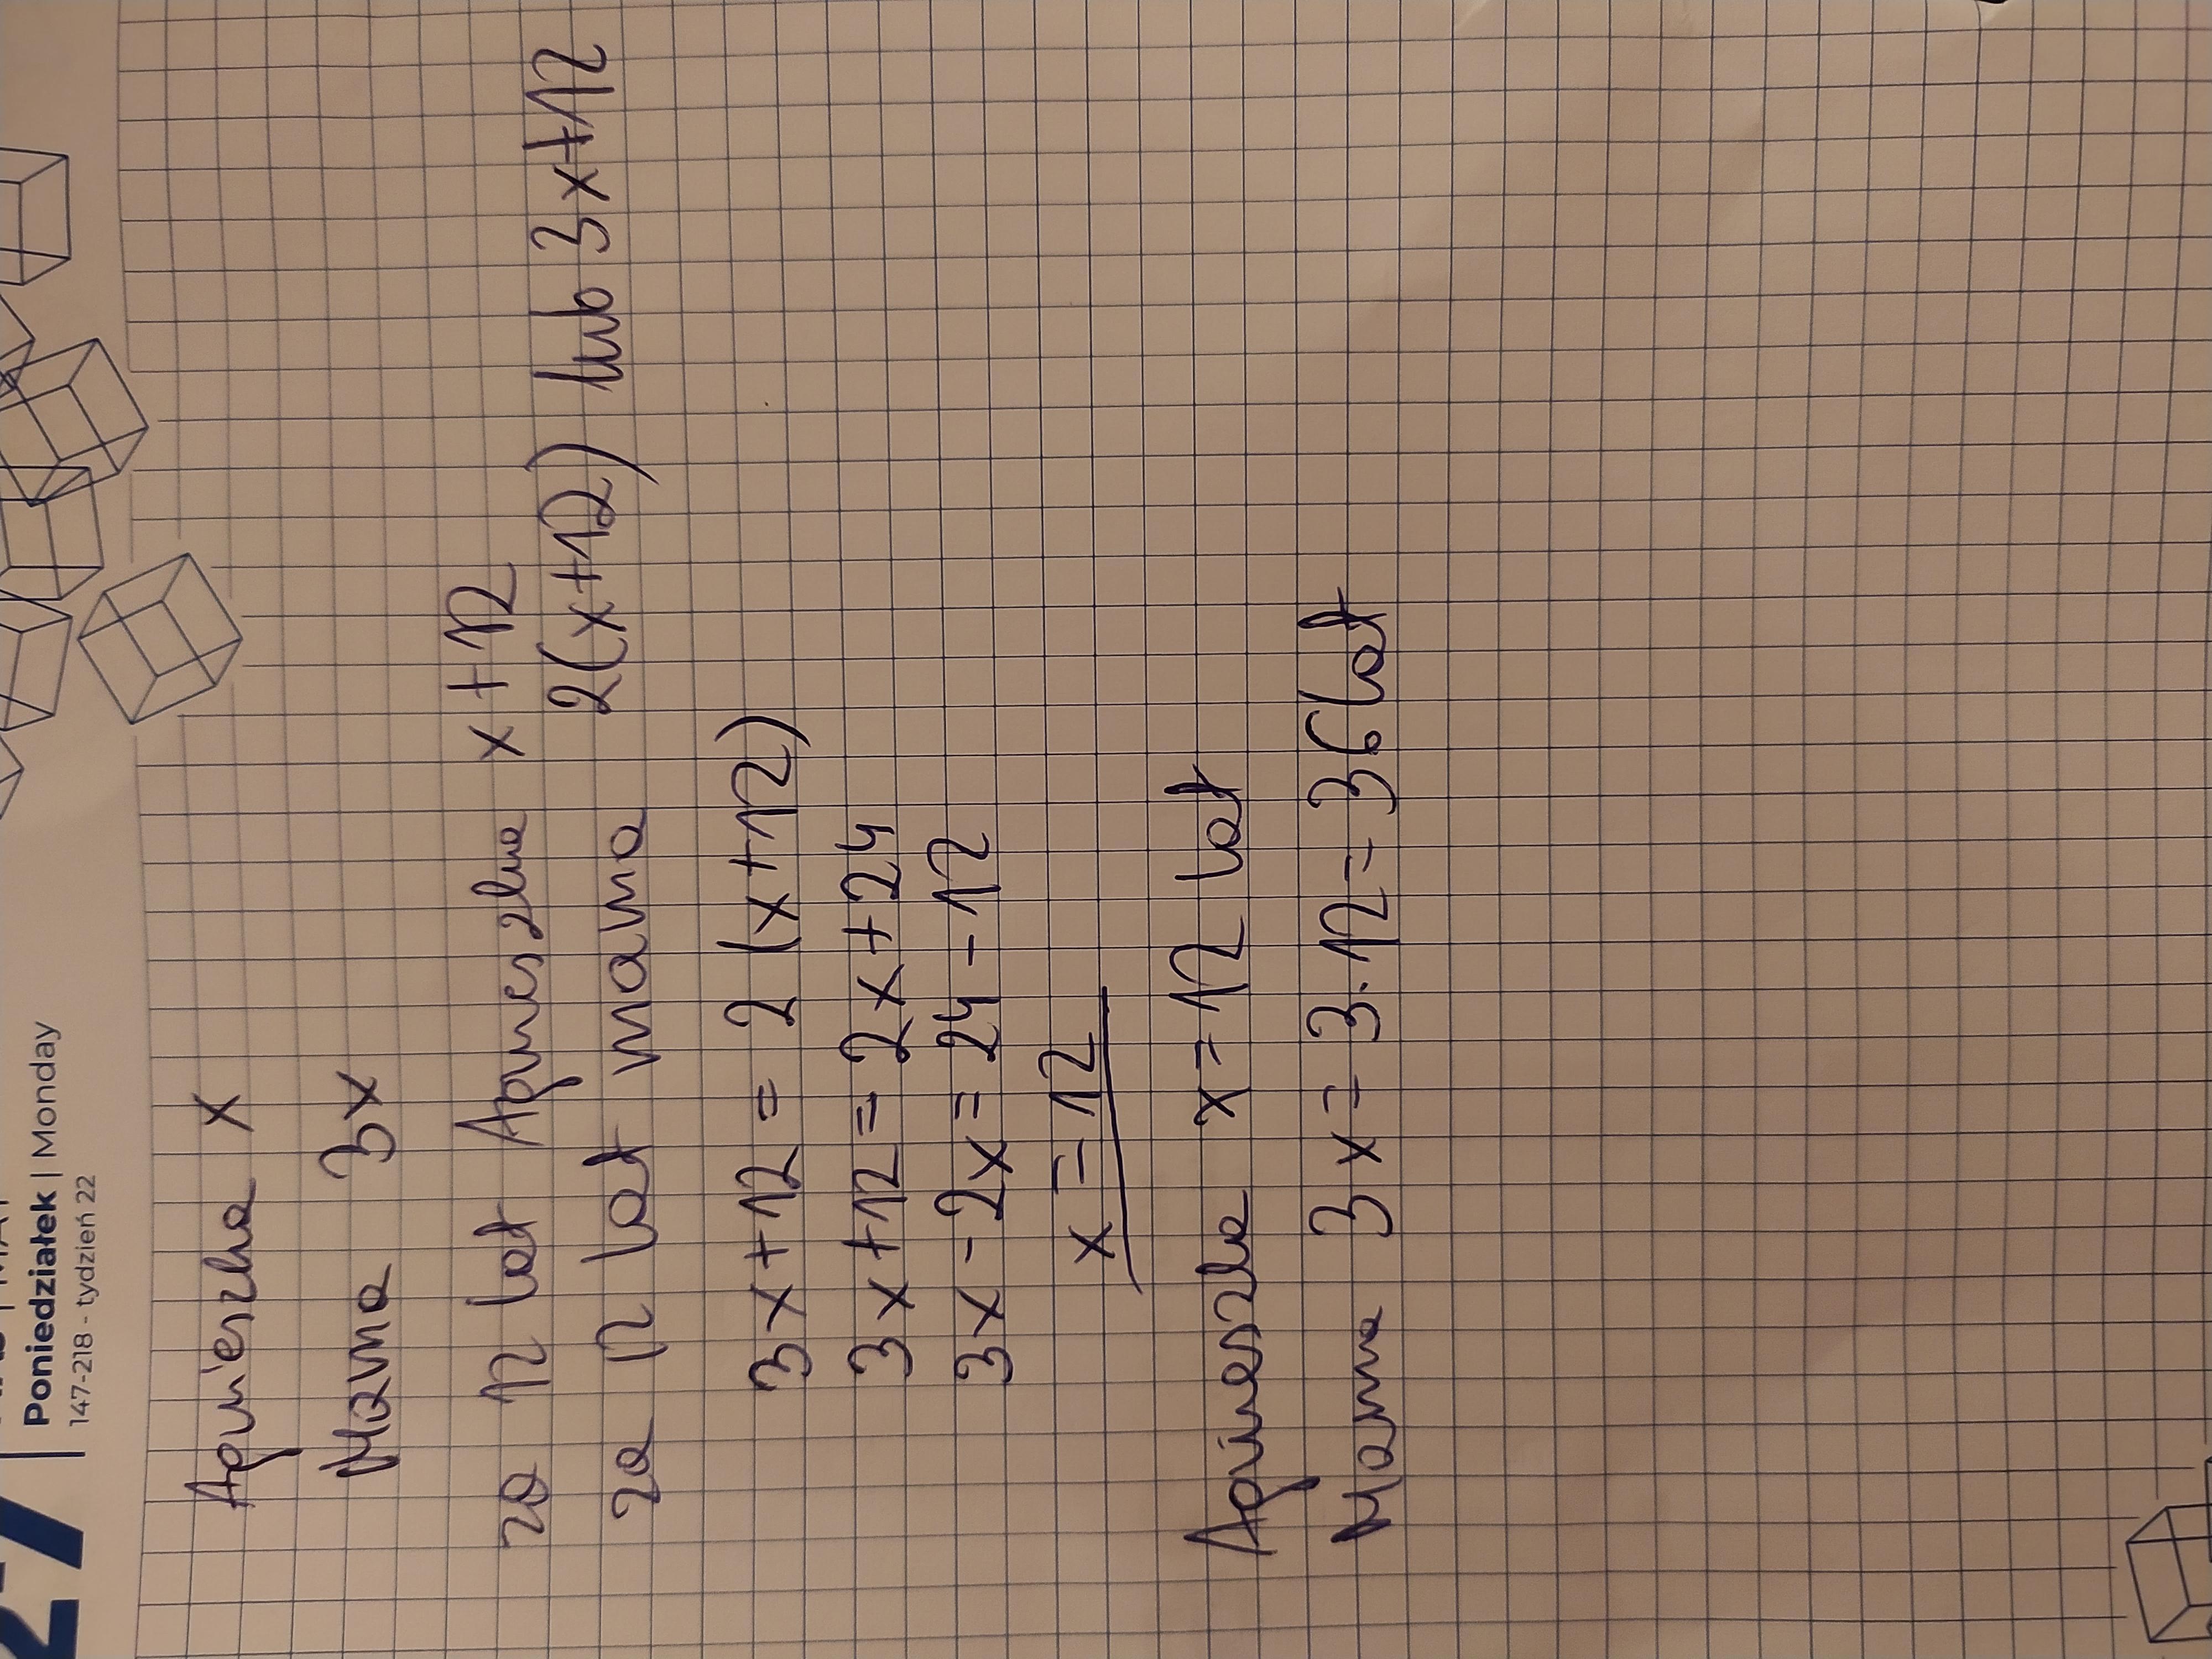 27
Poniedziałek | Monday
147-218 - tydzień 22
Agnieszka x
Mama 3x
za 12 lat Agnieszka x+12
za 12 lat mama 2(x+12) lub 3x+12
3x+12 = 2(x+12)
3x+12=2x+24
3x-2x=24-12
x=12
Agnieszka x=12 lat
Mama 3x=3·12=36lat